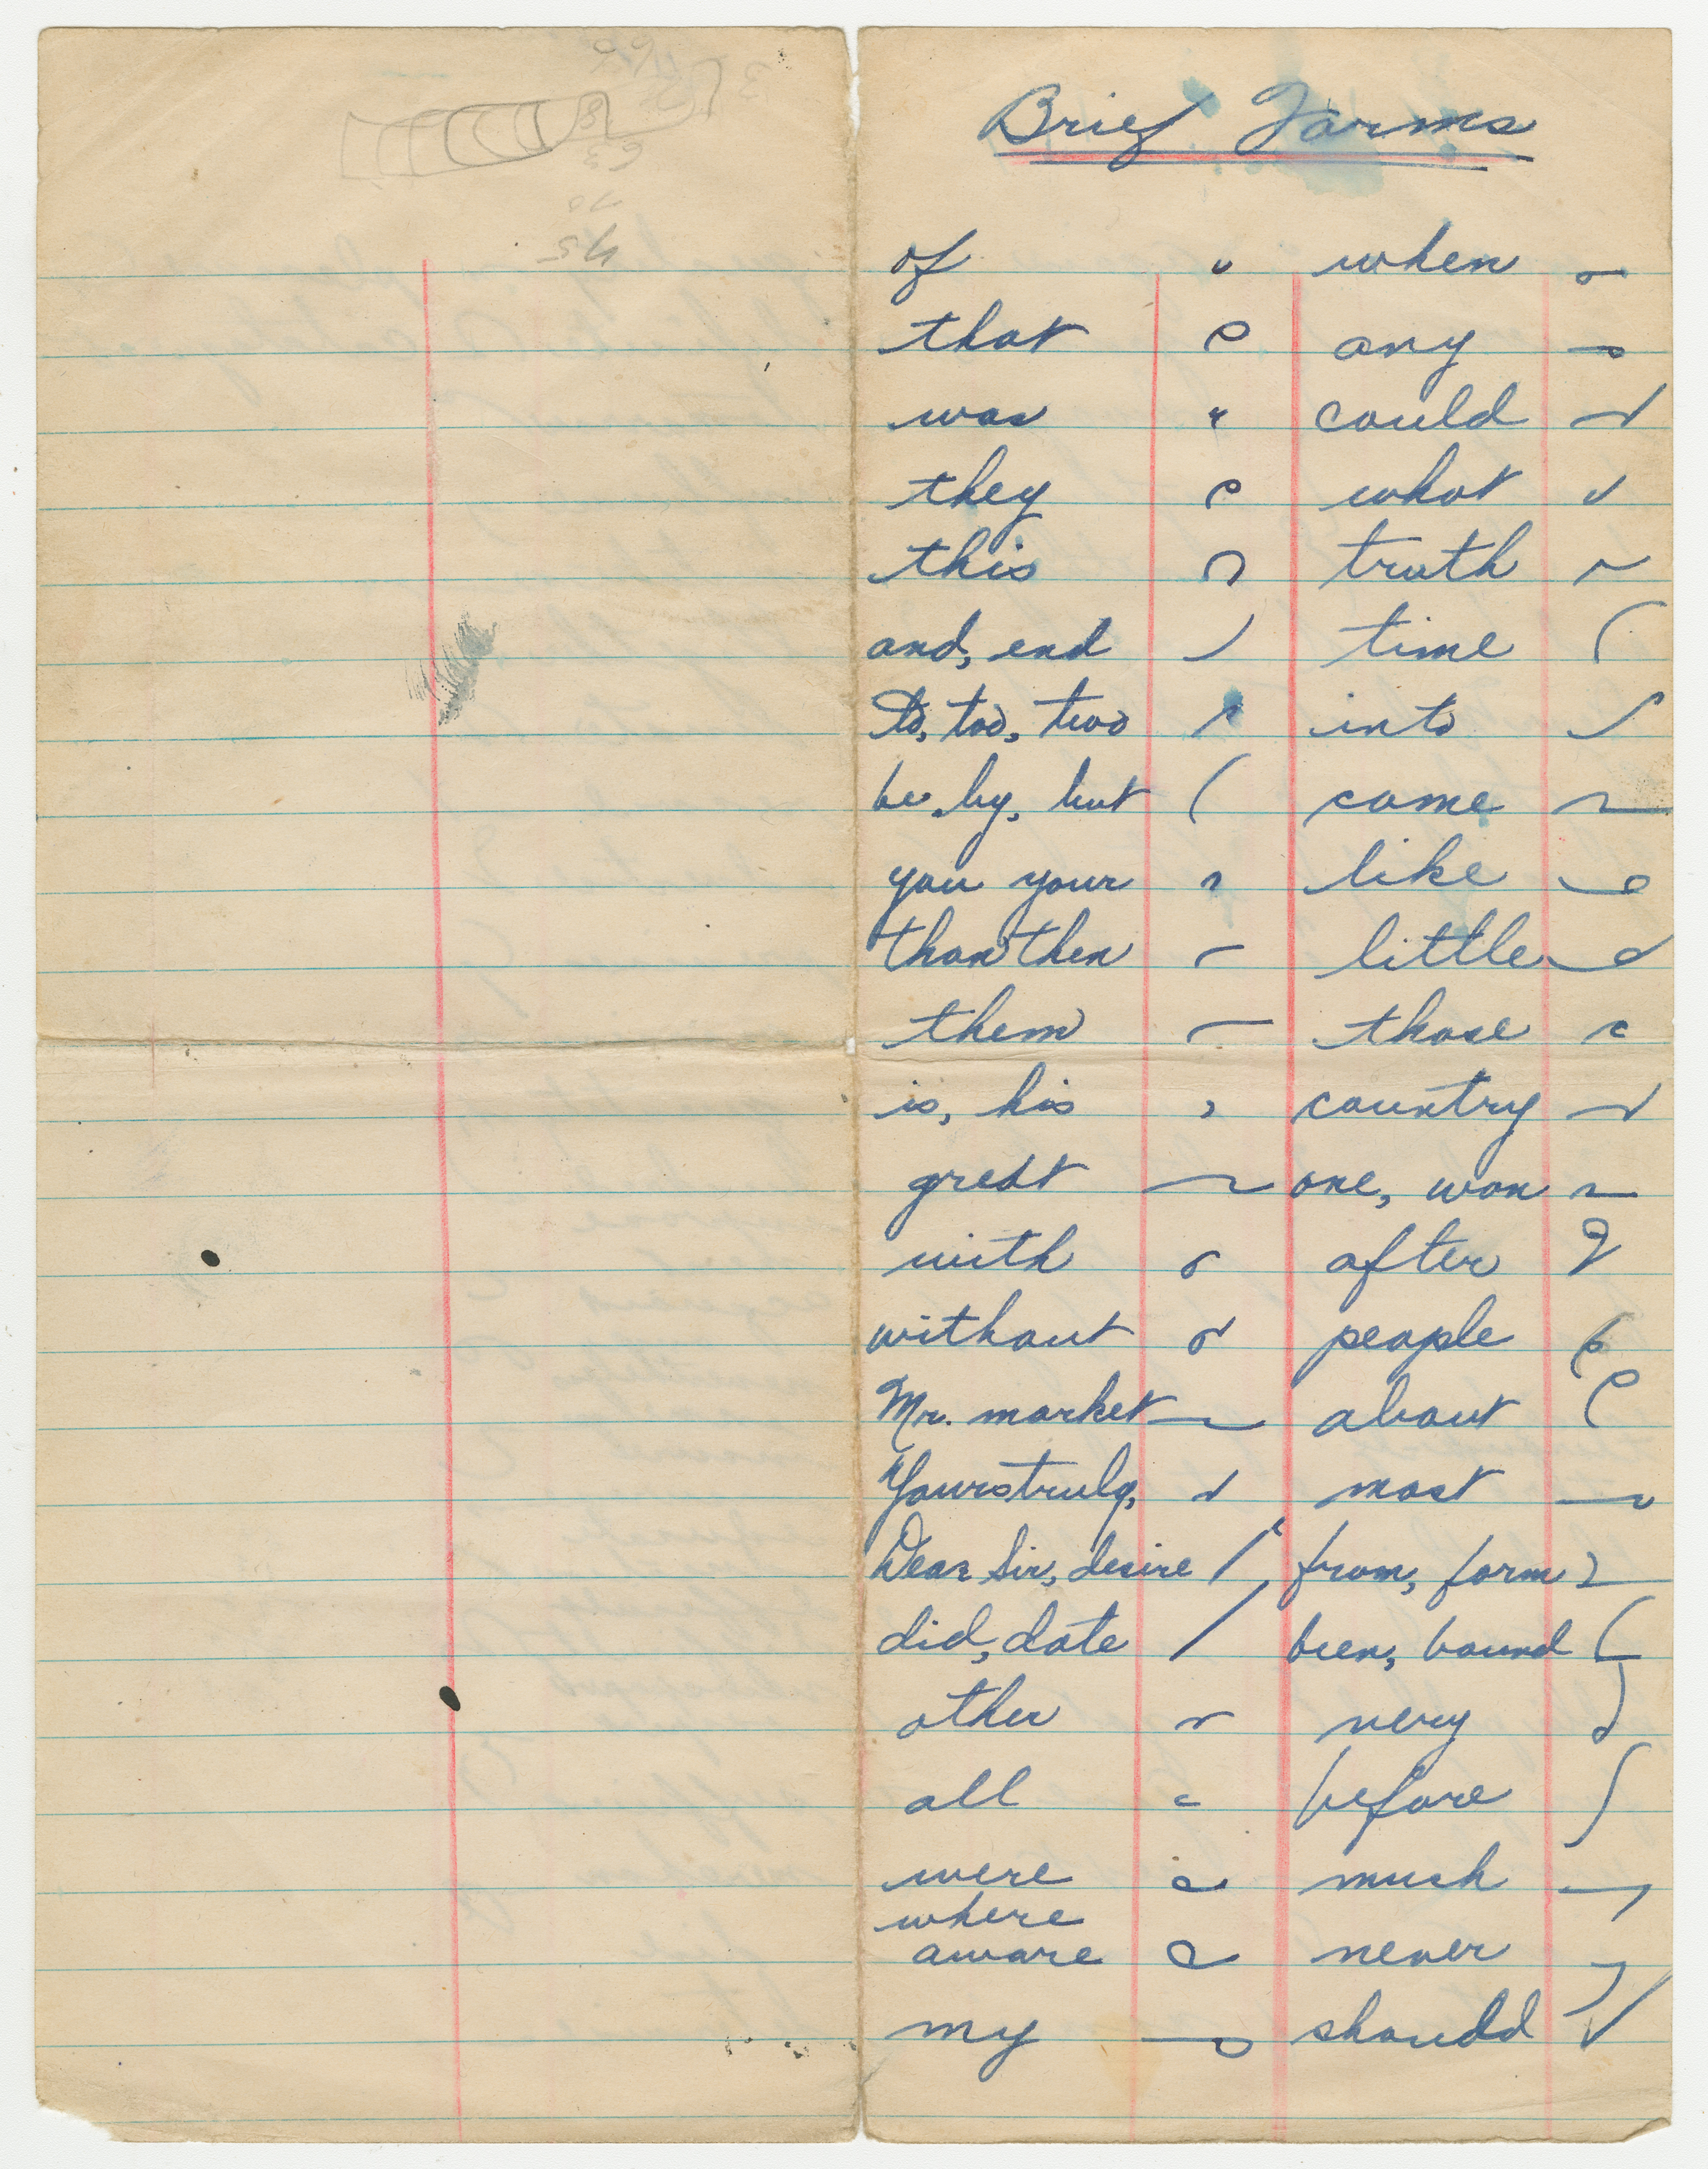 Brief Forms
of when
that any
was could
they what
this truth
and, end time
to, too, two into
be, by, but come
you your like
than then little
them those
is, his country
great one, won
with after
without people
Mr. market about
Yours truly, most
Dear Sir, desire from, form
did, date been, bound
other very
all before
were much
where
aware never
my should